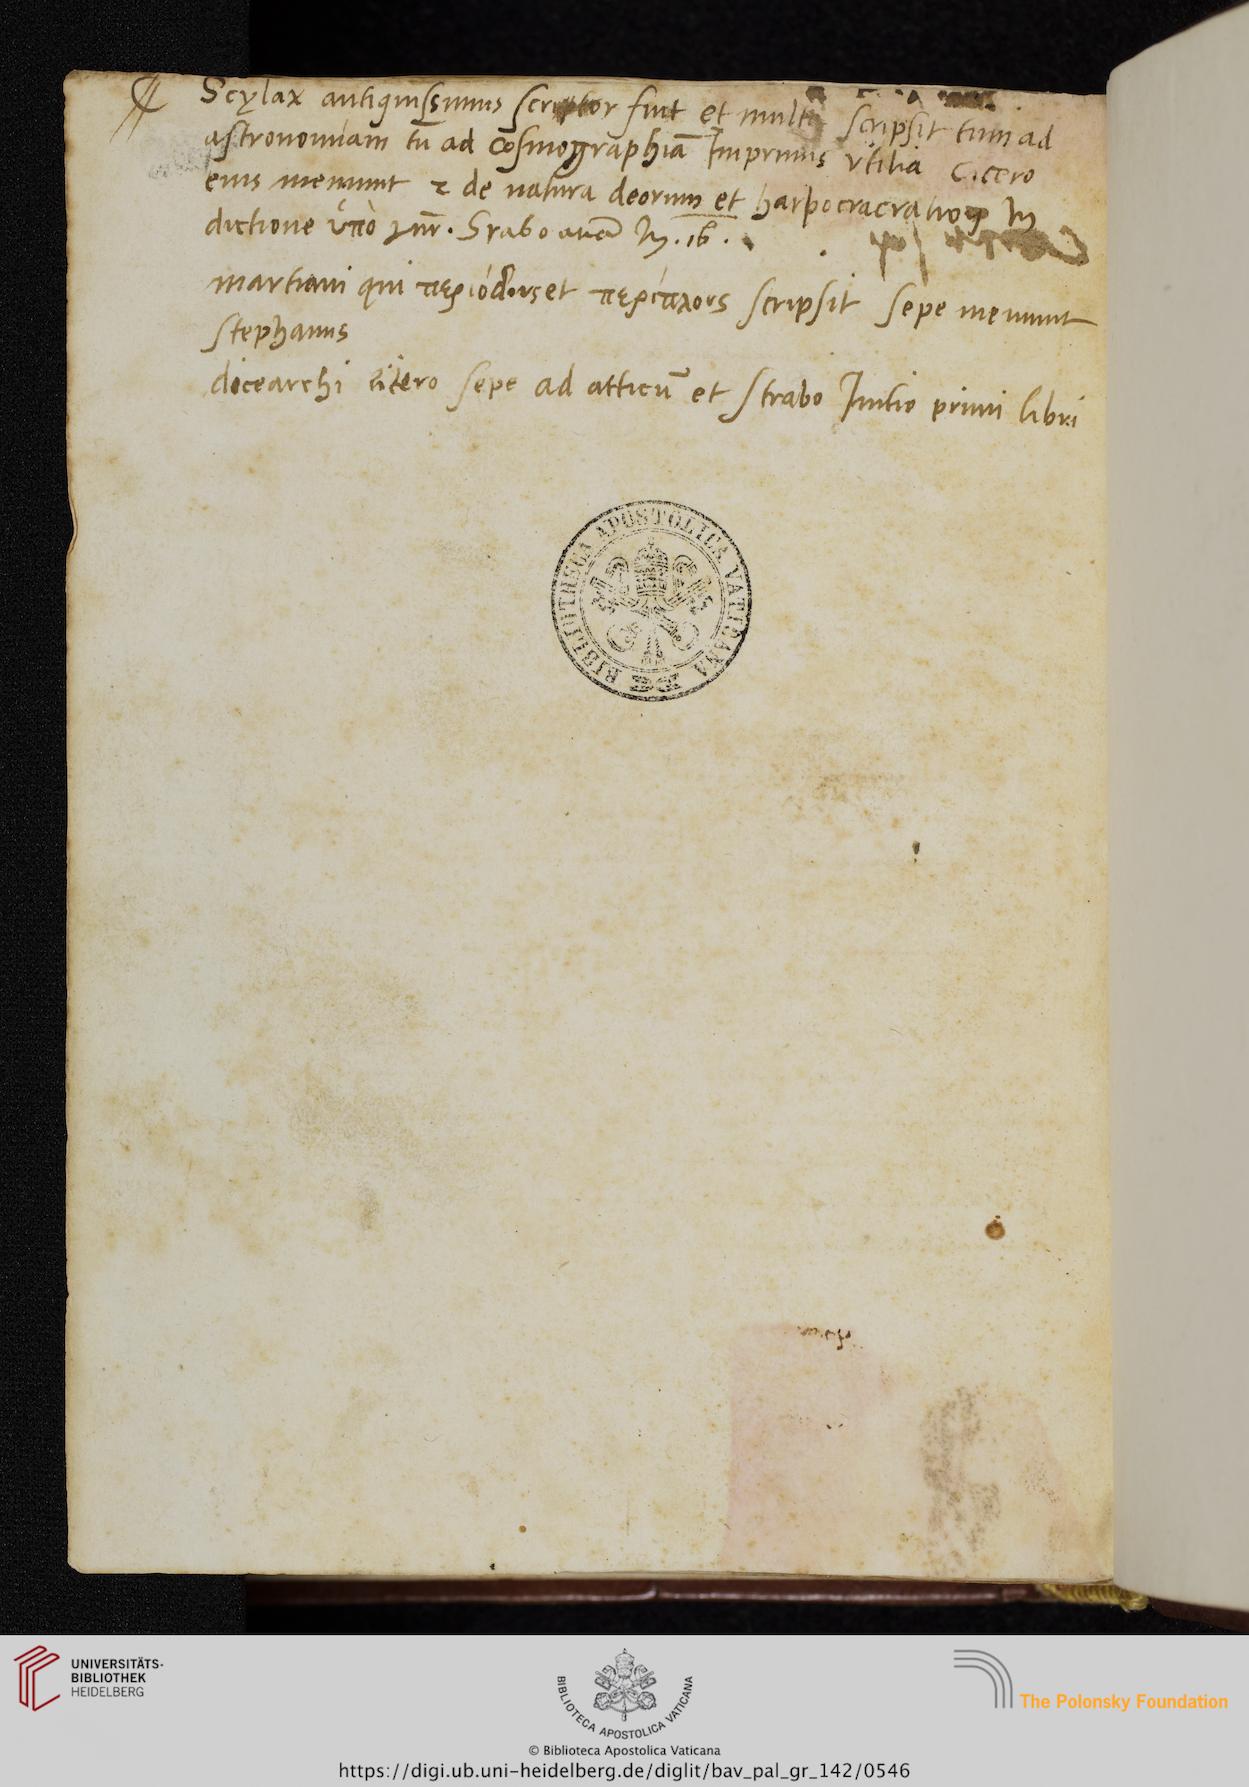 Scylax antiquissimus scriptor fuit et multa scripsit tum ad
astronomiam tū ad cosmographiā Imprimis vtilia Cicero
eius meminit 2 de natura deorum et harpocracration In
dictione ὑπὸ γῆν. Srabo In . 16 .
martiani qui περιόδους et περίπλους scripsit sepe meminit
stephanus
dicearchi citero sepe ad atticū et strabo Initio primi libri
BIBLIOTHECA APOSTOLICA VATICANA
UNIVERSITÄTS-
BIBLIOTHEK
HEIDELBERG
BIBLIOTECA APOSTOLICA VATICANA
The Polonsky Foundation
© Biblioteca Apostolica Vaticana
https://digi.ub.uni-heidelberg.de/diglit/bav_pal_gr_142/0546